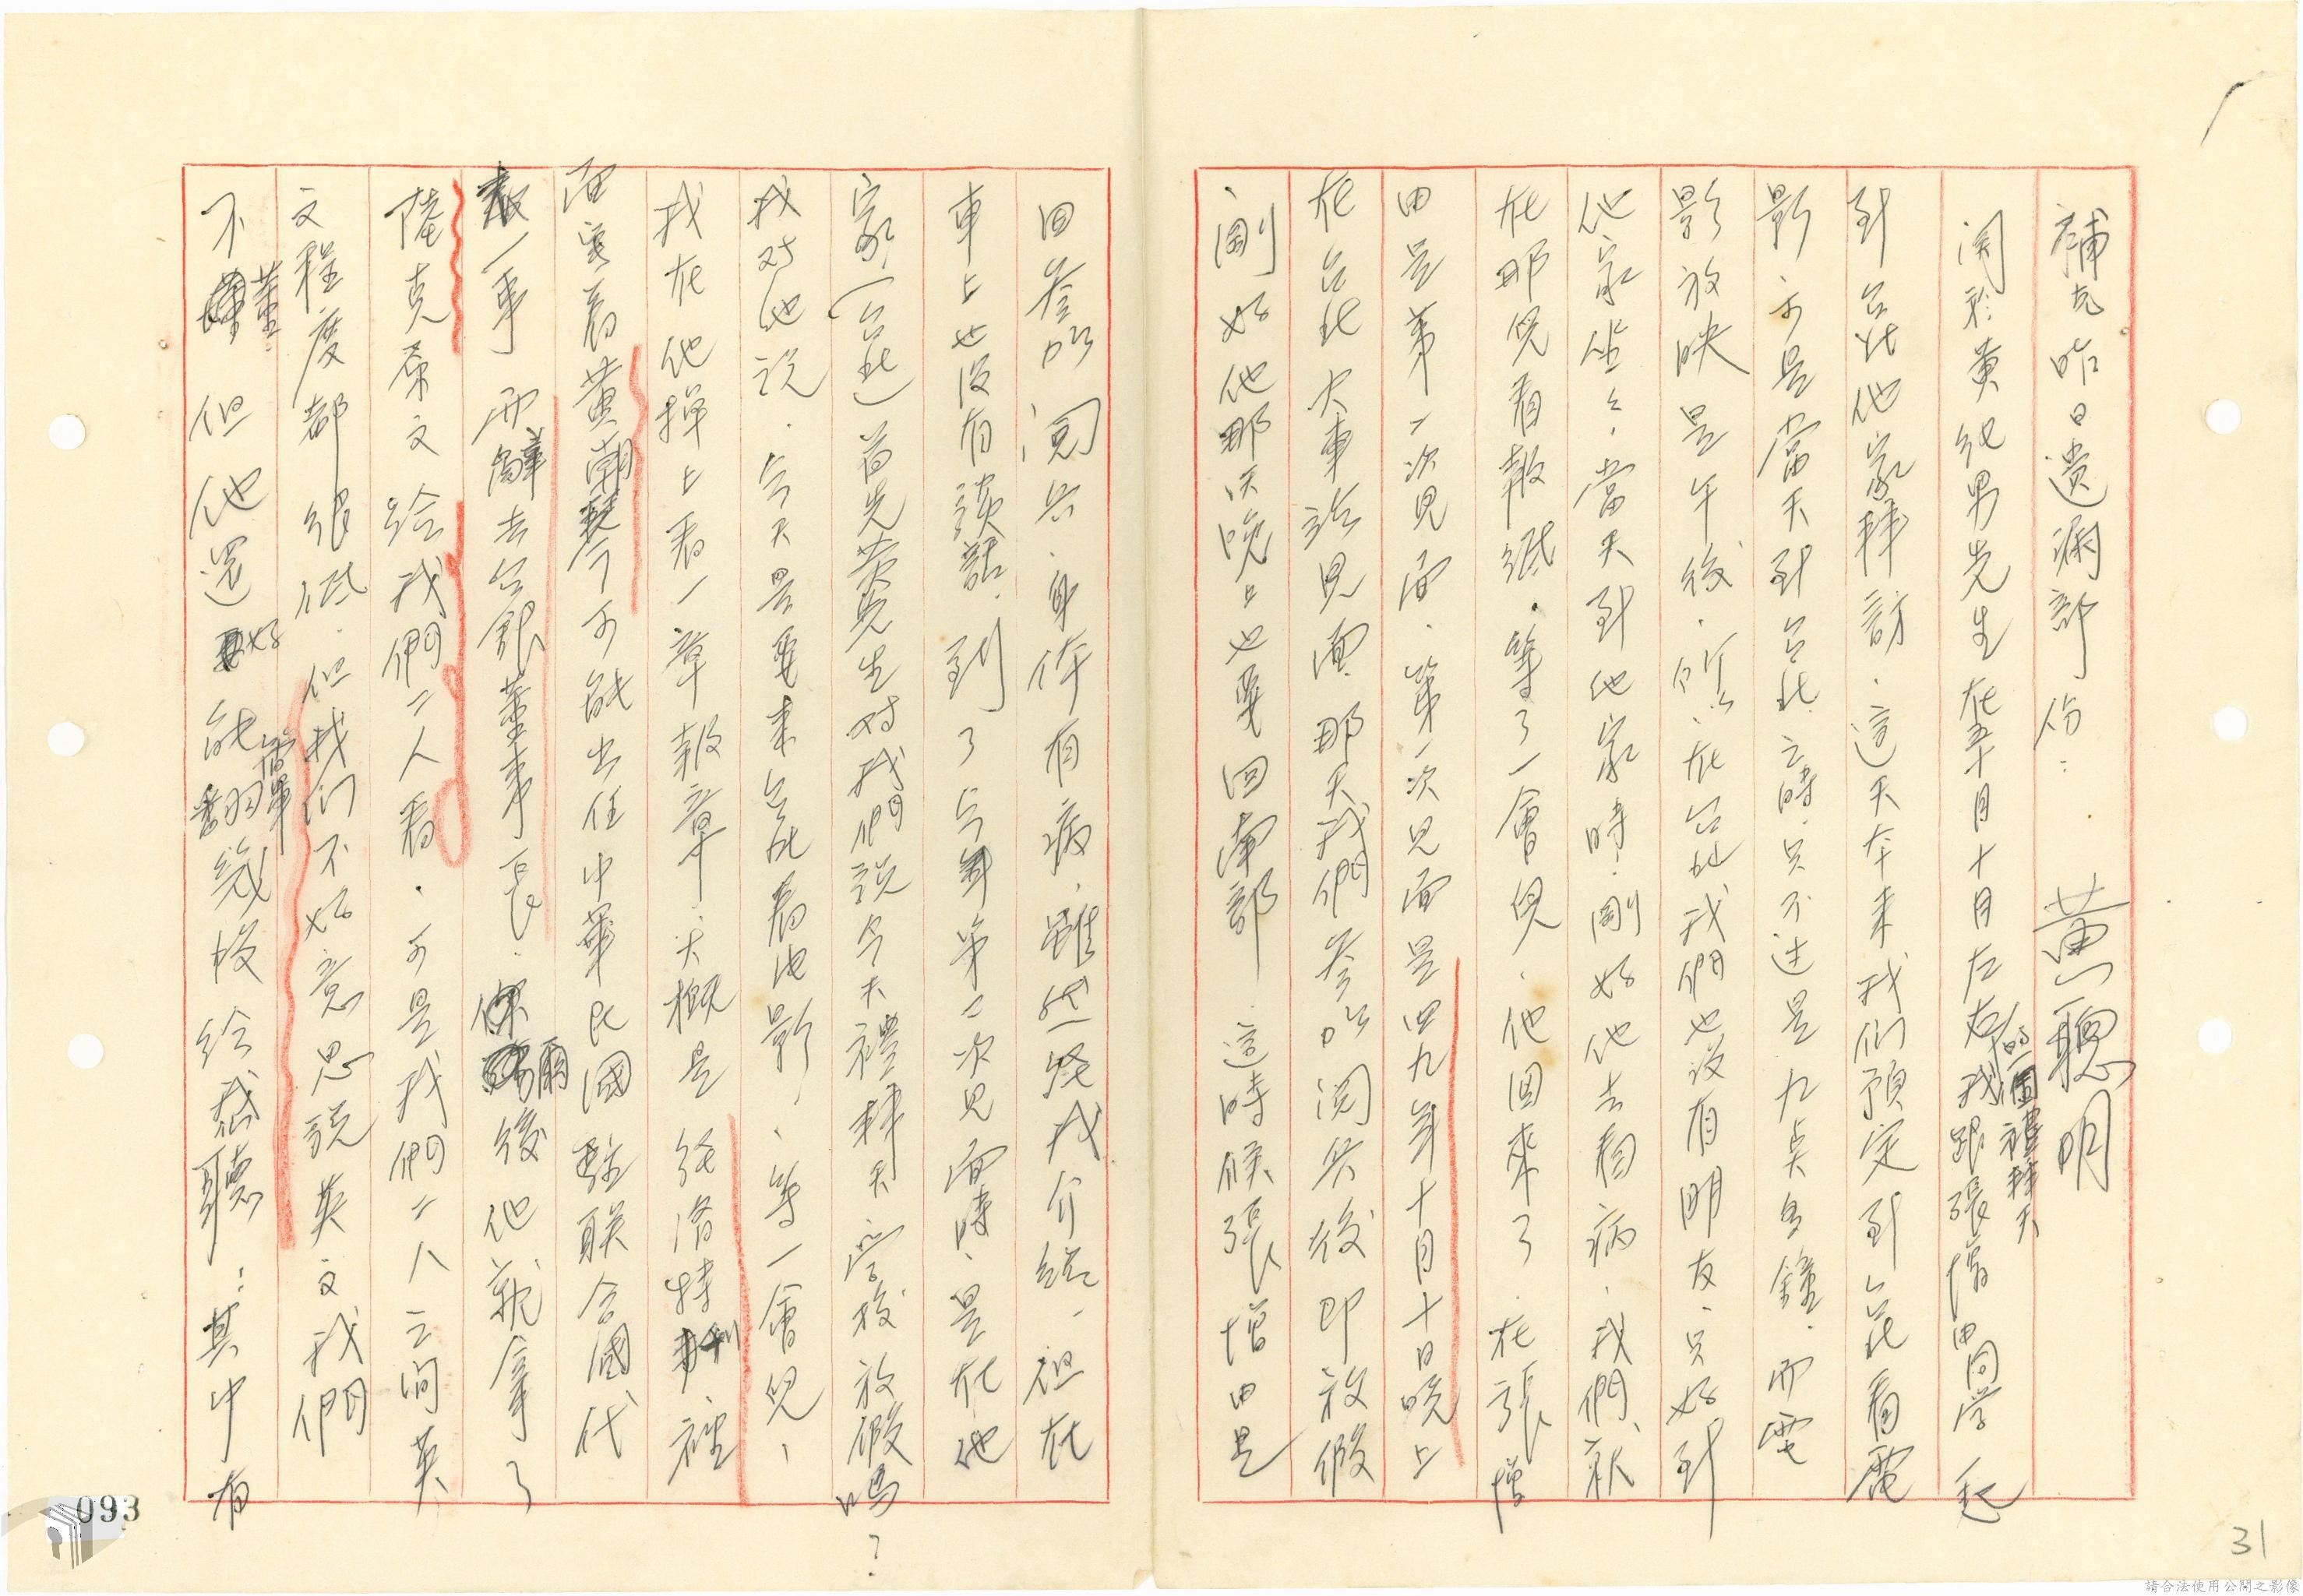 補充昨日遺漏部份： 黃聰明
関於黃紀男先生在五十年十月十日左右的一個禮拜天我跟張憎田同学一起
到台北他家拜訪．這天本来我们預定到台北看電
影．可是當天到台北之時．只不过是九点多鐘．而電
影放映是午後．所以在台北我們也没有朋友．只好到
他家坐坐．當天到他家時．剛好他去看病．我們就
在那児看報纸．等了一會児．他回來了．在張憎
田是第二次見面．第一次見面是四九年十月十日晚上
在台北火車站見面．那天我們参加阅兵後即放假
剛好他那天晚上也要回南部．這時候張憎田是
回参加阅兵．身体有病．雖然经我介紹．但在
車上也没有談話．到了今年第二次見面時．是在他
家（台北）首先黃先生对我們說今天禮拜天．学校放假嗎？
我对他說．今天是要来台北看电影．等一會児．
我在他掉上看一章報章．大概是经濟特刊．裡
面寫着黃朝琴可能出任中華民國駐联合國代
表一事 而辭去台銀董事長．爾後他就拿了
陸克原文给我們二人看．可是我們二人之间英
文程度都很低．但我们不好意思說英文我們
不董 但他還好能當埸翻譯幾段给我聽：其中有
093
31
請合法使用公開之影像